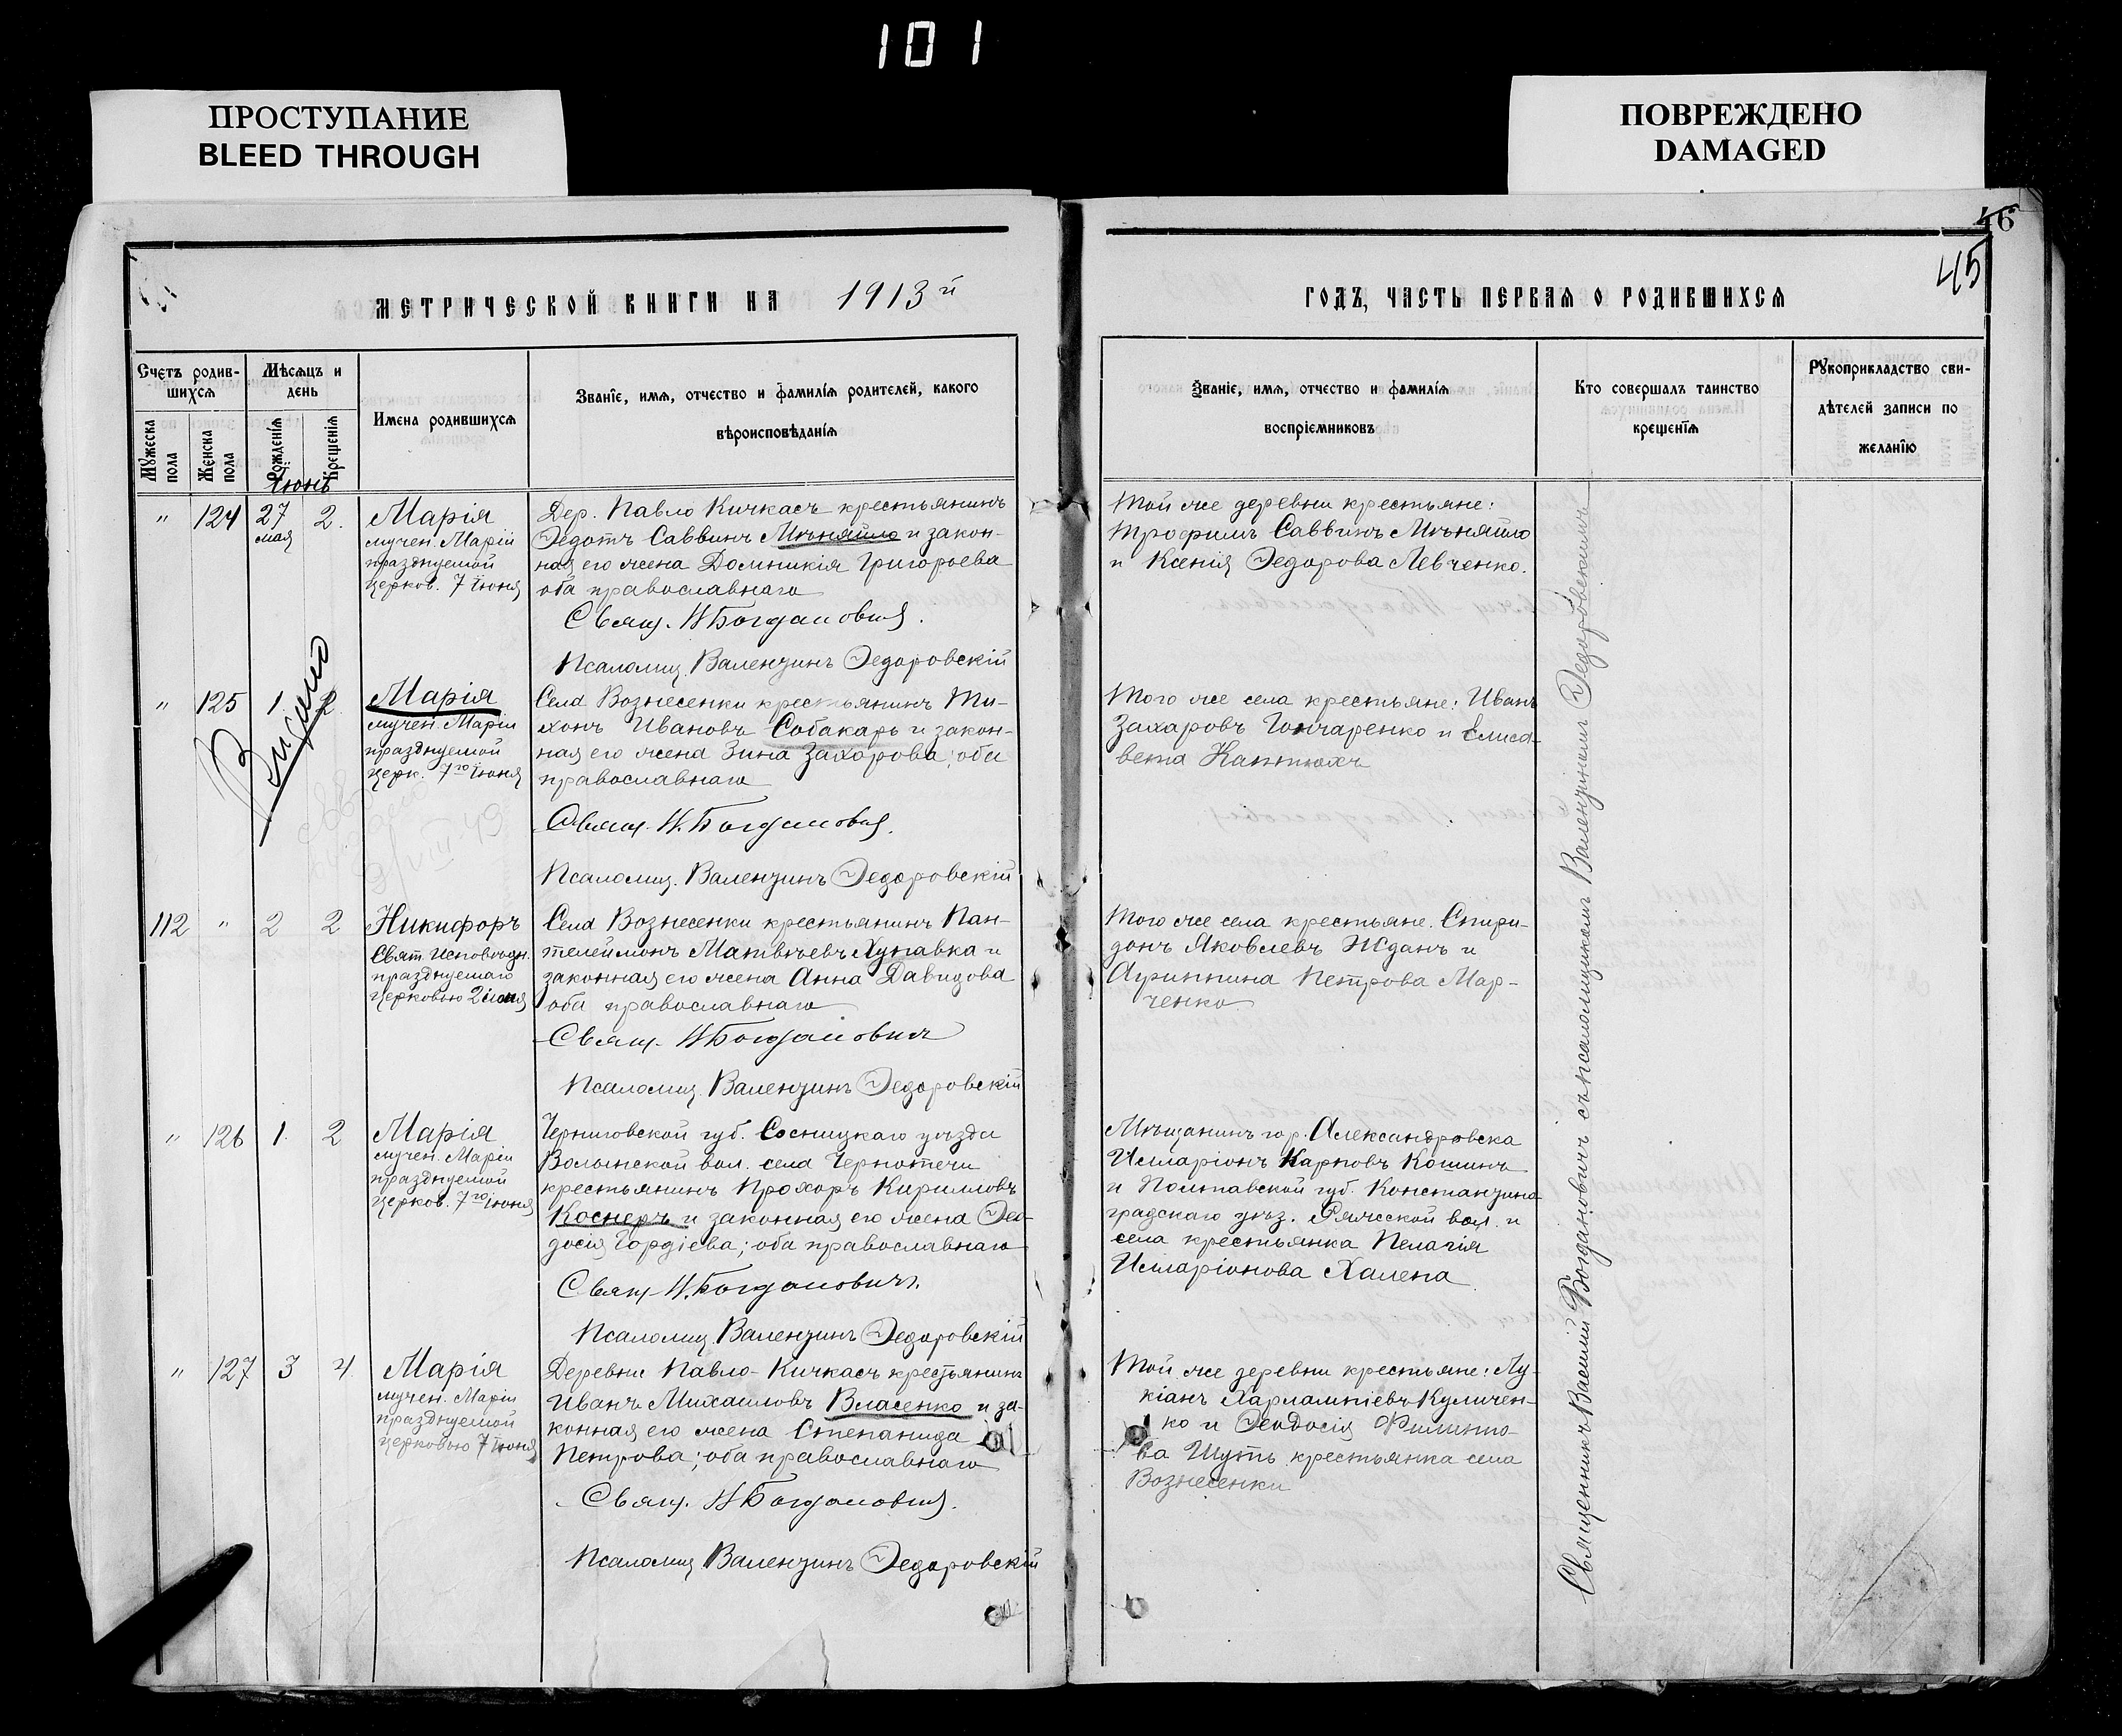 101
ПРОСТУПАНИЕ
BLEED THROUGH
ПОВРЕЖДЕНО
DAMAGED
46
45
МЕТРИЧЕСКОЙ КНИГИ НА 1913й
ГОДЪ, ЧАСТЬ ПЕРВАЯ О РОДИВШИХСЯ
Счетъ родив-
шихся
Мѣсяцъ и
день
Мужеска
пола
Женска
пола
Рожденія
Крещенія
Имена родившихся
Званіе, имя, отчество и фамилія родителей, какого
вѣроисповѣданія
Званіе, имя, отчество и фамилія
воспріемниковъ
Кто совершалъ таинство
крещенія
Рукоприкладство сви-
дѣтелей записи по
желанію
Іюнь
" 124 27 мая 2.
Марія
мучен. Маріи
празднуемой
церков. 7 Іюня
Дер. Павло Кичкасъ крестьянинъ
Ѳедотъ Саввинъ Мѣняйло и закон-
ная его жена Домникія Григорьева
оба православнаго
Свящ. В Богдановичъ.
Псаломщ. Валентинъ Ѳедоровскій
Той же деревни крестьяне:
Трофимъ Саввинъ Мѣняйло
и Ксенія Ѳедорова Левченко.
" 125 1. 2.
Видано
Марія
мучен. Маріи
празднуемой
церк. 7го Іюня
9/VIII-49
Села Вознесенки крестьянинъ Ти-
хонъ Ивановъ Собакарь и закон-
ная его жена Зина Захарова; оба
православнаго
Свящ. В. Богдановичъ.
Псаломщ. Валентинъ Ѳедоровскій
Того же села крестьяне: Иванъ
Захаровъ Гончаренко и Елиса-
вета Каптюхъ
112 " 2 2
Никифоръ
Свят. Исповѣдн.
празднуемаго
церковью 2 іюня
Села Вознесенки крестьянинъ Пан-
телеймонъ Матвѣевъ Хупавка и
законная его жена Анна Давидова
оба православнаго
Свящ. В Богдановичъ
Псаломщ. Валентинъ Ѳедоровскій
Того же села крестьяне. Спири-
донъ Яковлевъ Жданъ и
Агриппина Петрова Мар-
ченко
" 126 1. 2
Марія
мучен. Маріи
празднуемой
церков. 7го іюня
Черниговской губ. Сосницкаго уѣзда
Волынской вол. села Чернотечи
крестьянинъ Прохоръ Кирилловъ
Коснеръ и законная его жена Ѳео-
досія Гордіева; оба православнаго
Свящ. В. Богдановичъ.
Псаломщ. Валентинъ Ѳедоровскій
Мѣщанинъ гор. Александровска
Илларіонъ Карповъ Кошинъ
и Полтавской губ. Константино-
градскаго уѣз. Ряжской вол. и
села крестьянка Пелагія
Илларіонова Халепа
" 127 3 4
Марія
мучен. Маріи
празднуемой
церковью 7 Іюня
Деревни Павло-Кичкасъ крестьянинъ
Иванъ Михаиловъ Власенко и за-
конная его жена Степанида
Петрова; оба православнаго
Свящ. В Богдановичъ.
Псаломщ. Валентинъ Ѳедоровскій
Той же деревни крестьяне: Лу-
кіанъ Харлампіевъ Куличен-
ко и Ѳеодосія Филиппо-
ва Шуть крестьянка села
Вознесенки
Священникъ Василій Богдановичъ съ псаломщикомъ Валентиномъ Ѳедоровскимъ